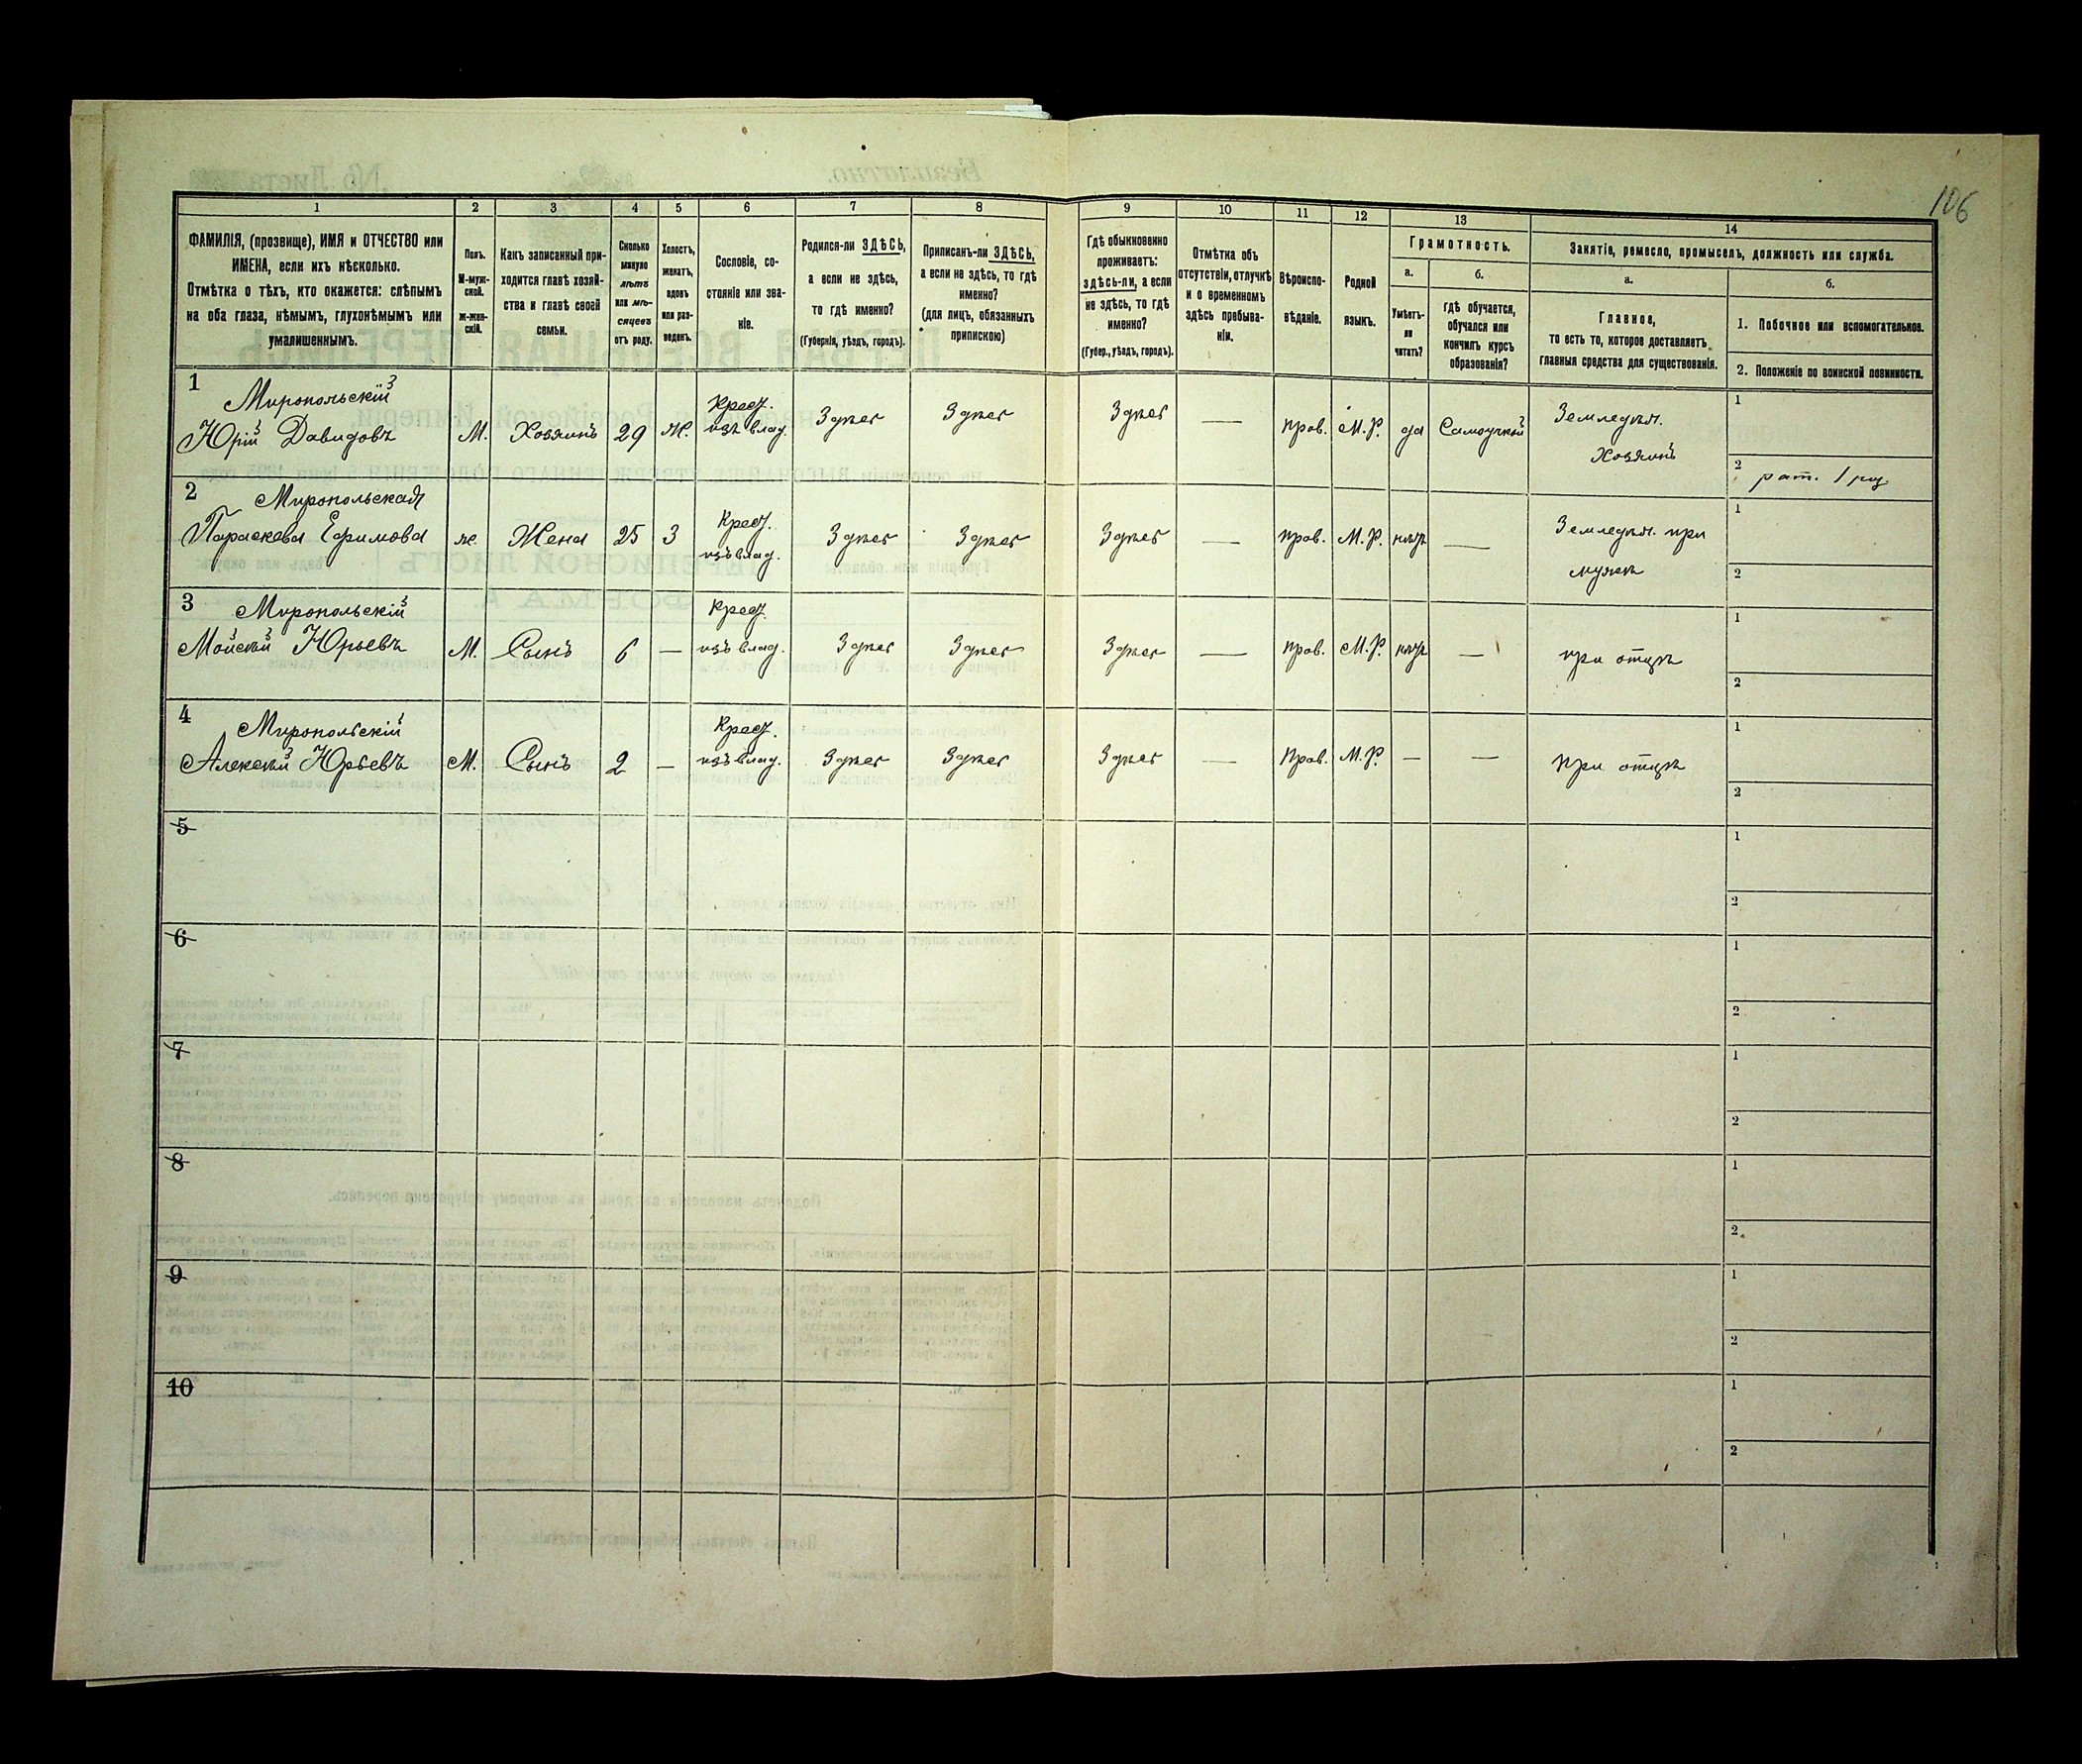 106
1
2
3
4
5
6
7
8
9
10
11
12
13
14
ФАМИЛІЯ, (прозвище), ИМЯ и ОТЧЕСТВО или
ИМЕНА, если ихъ нѣсколько.
Отмѣтка о тѣхъ, кто окажется: слѣпымъ
на оба глаза, нѣмымъ, глухонѣмымъ или
умалишеннымъ.
Полъ.
М-муж-
ской.
Ж-жен-
скій.
Какъ записанный при-
ходится главѣ хозяй-
ства и главѣ своей
семьи.
Сколько
минуло
лѣтъ
или мѣ-
сяцевъ
отъ роду.
Холостъ,
женатъ,
вдовъ
или раз-
веденъ.
Сословіе, со-
стояніе или зва-
ніе.
Родился-ли ЗДѢСЬ,
а если не здѣсь,
то гдѣ именно?
(Губернія, уѣздъ, городъ).
Приписанъ-ли ЗДѢСЬ,
а если не здѣсь, то гдѣ
именно?
(для лицъ, обязанныхъ
припискою)
Гдѣ обыкновенно
проживаетъ:
здѣсь-ли, а если
не здѣсь, то гдѣ
именно?
(Губер., уѣздъ, городъ).
Отмѣтка объ
отсутствіи, отлучкѣ
и о временномъ
здѣсь пребыва-
ніи.
Вѣроиспо-
вѣданіе.
Родной
языкъ.
Грамотность.
а.
Умѣетъ-
ли
читать?
б.
гдѣ обучается,
обучался или
кончилъ курсъ
образованія?
Занятіе, ремесло, промыселъ, должность или служба.
а.
Главное,
то есть то, которое доставляетъ
главныя средства для существованія.
б.
1. Побочное или вспомогательное.
2. Положеніе по воинской повинности.
1 Миропольскій
Юрій Давидовъ М. Хозяинъ 29 Ж. Крест. изъ влад. Здѣсь Здѣсь Здѣсь — прав. М.Р. да Самоучкой Земледѣл. Хозяинъ
1
2 рат. 1 раз.
2 Миропольская
Параскева Ефимова ж Жена 25 З Крест. изъ влад. Здѣсь Здѣсь Здѣсь — прав. М.Р. нѣтъ — Земледѣл. при мужѣ
1
2
3 Миропольскій
Мойсей Юрьевъ М. Сынъ 6 — Крест. изъ влад. Здѣсь Здѣсь Здѣсь — прав. М.Р. нѣтъ — при отцѣ
1
2
4 Миропольскій
Алексѣй Юрьевъ М. Сынъ 2 — Крест. изъ влад. Здѣсь Здѣсь Здѣсь — прав. М.Р. — — при отцѣ
1
2
5
1
2
6
1
2
7
1
2
8
1
2
9
1
2
10
1
2